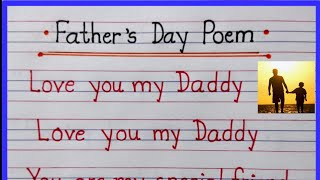 • Father's Day Poem •
Love you my Daddy
Love you my Daddy
You are my special friend